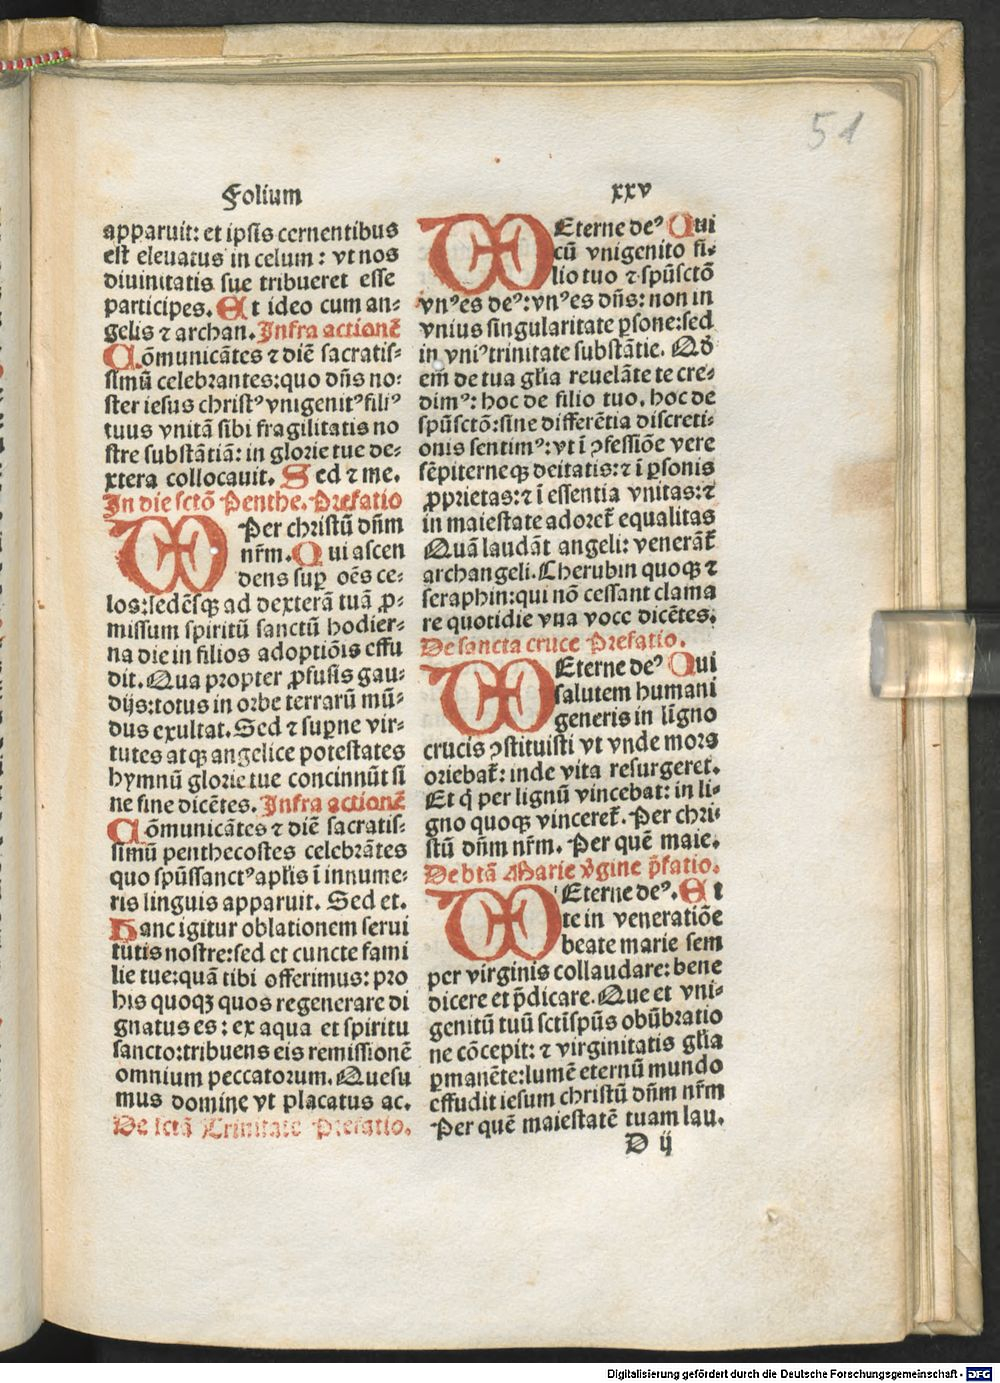 51
Folium xxv
apparuit: et ipsis cernentibus
est eleuatus in celum: vt nos
diuinitatis sue tribueret esse
participes. Et ideo cum an⸗
gelis ⁊ archan. Infra actionē
Cōmunicātes ⁊ diē sacratis⸗
simū celebrantes:quo dn̄s no⸗
ster iesus christꝰ vnigenitꝰ filiꝰ
tuus vnitā sibi fragilitatis no
stre substātiā: in glorie tue de⸗
xtera collocauit. Sed ⁊ me.
In die sctō Penthe. Prefatio
Per christū dn̄m
nr̄m. Qui ascen
dens suꝑ oēs ce⸗
los:sedēsqꝫ ad dexterā tuā ꝓ⸗
missum spiritū sanctū hodier⸗
na die in filios adoptiōis effu
dit. Qua propter ꝓfusis gau⸗
dijs:totus in orbe terrarū mū⸗
dus exultat. Sed ⁊ suꝑne vir⸗
tutes atqꝫ angelice potestates
hymnū glorie tue concinnūt si
ne fine dicētes. Infra actionē
Cōmunicātes ⁊ diē sacratis⸗
simū penthecostes celebrātes
quo spūssanctꝰ apl̄is ī innume⸗
ris linguis apparuit. Sed et.
Hanc igitur oblationem serui
tutis nostre:sed et cuncte fami
lie tue:quā tibi offerimus: pro
his quoqꝫ quos regenerare di
gnatus es: ex aqua et spiritu
sancto:tribuens eis remissionē
omnium peccatorum. Quesu
mus domine vt placatus ac.
De sctā Trinitate Prefatio.
VEterne deꝰ Qui
cū vnigenito fi⸗
lio tuo ⁊ spūsctō
vnꝰ es deꝰ: vnꝰ es dn̄s: non in
vnius singularitate ꝑsone:sed
in vniꝰ trinitate substātie. Qd̄
em̄ de tua gl̄ia reuelāte te cre⸗
dimꝰ: hoc de filio tuo. hoc de
spūsctō: sine differētia discreti⸗
onis sentimꝰ: vt ī ꝯfessiōe vere
sēpiterneqꝫ deitatis: ⁊ ī ꝑsonis
ꝓprietas: ⁊ ī essentia vnitas: ⁊
in maiestate adoret̄ equalitas
Quā laudāt angeli: venerāt̄
archangeli. Cherubin quoqꝫ ⁊
seraphin:qui nō cessant clama
re quotidie vna voce dicētes.
De sancta cruce Prefatio.
VEterne deꝰ Qui
salutem humani
generis in ligno
crucis ꝯstituisti vt vnde mors
oriebat̄: inde vita resurgeret.
Et q̄ per lignū vincebat: in li⸗
gno quoqꝫ vinceret̄. Per chri⸗
stū dn̄m nr̄m. Per quē maie.
De btā Marie v̄gine p̄fatio.
VEterne deꝰ. Et
te in veneratiōe
beate marie sem
per virginis collaudare: bene
dicere et p̄dicare. Que et vni⸗
genitū tuū sctīspūs obūbratio
ne cōcepit: ⁊ virginitatis gl̄ia
ꝑmanēte:lumē eternū mundo
effudit iesum christū dn̄m nr̄m
Per quē maiestatē tuam lau.
D ij
Digitalisierung gefördert durch die Deutsche Forschungsgemeinschaft - DFG